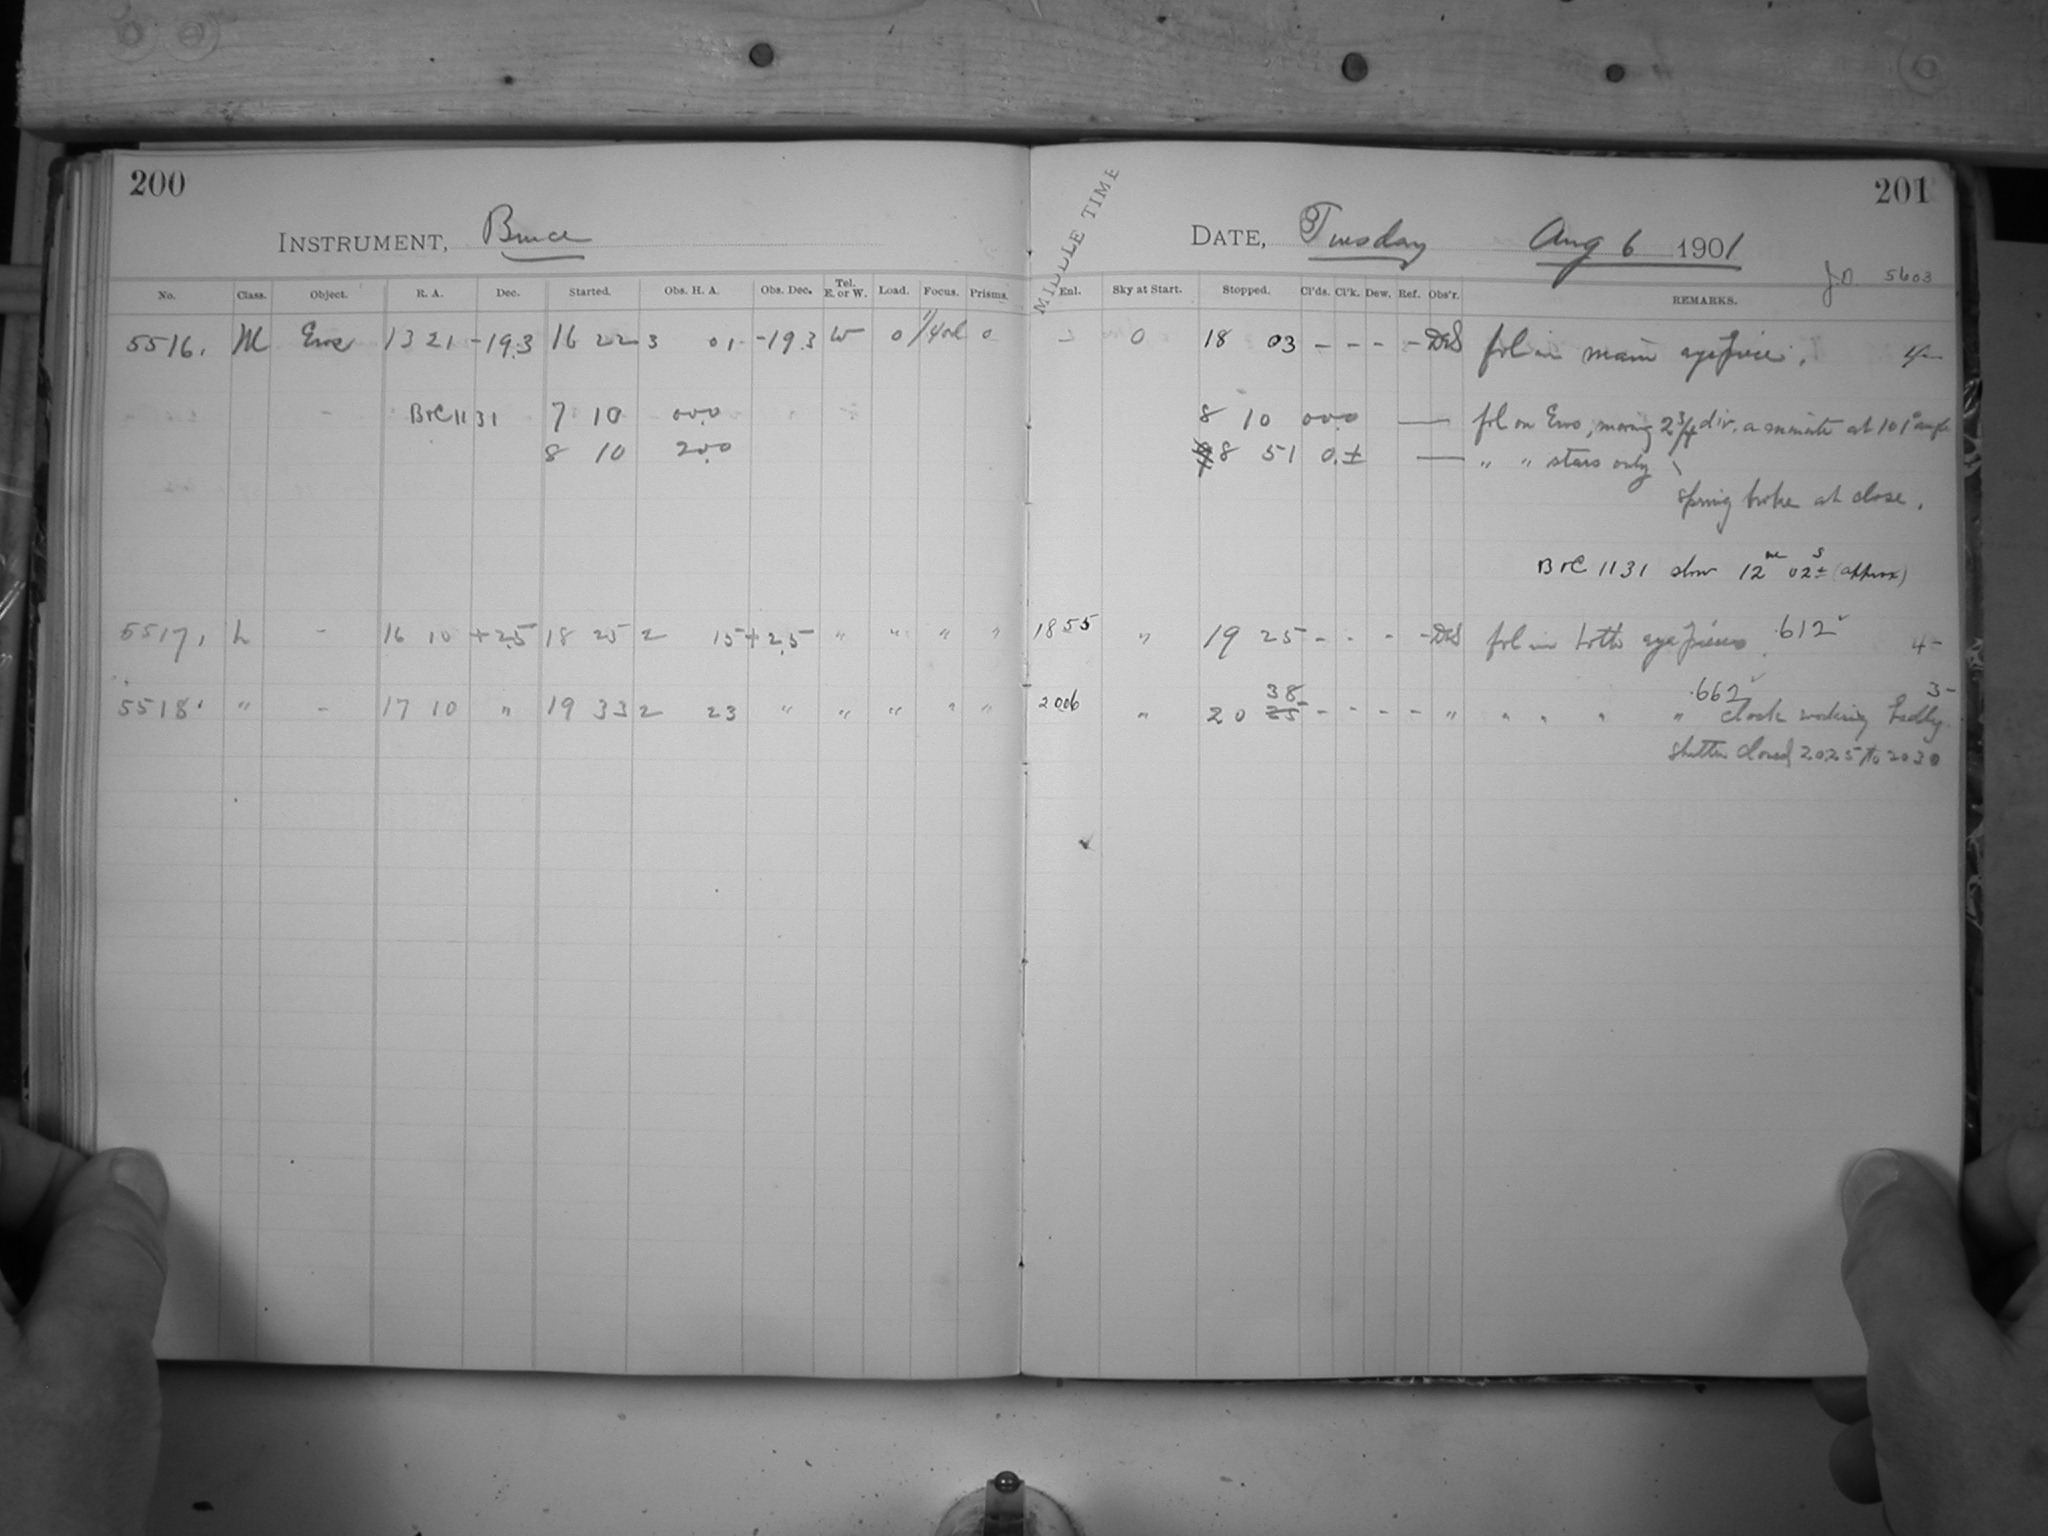 200
INSTRUMENT, Bruce
No. Class. Object. R. A. Dec. Started. Obs. H. A. Obs. Dec. Tel. E. or W. Load. Focus. Prisms.
5516. M Eros 13 21 -19.3 16 22 3 01 -19.3 W 0 0
B&C 1131 7 10 00.0
8 10 20.0
5517. L - 16 10 +2.5 18 25 2 15 +2.5 " " " "
5518. " - 17 10 " 19 33 2 23 " " " " "
201
MIDDLE TIME
DATE, Tuesday Aug 6 1901
JD 5603
Enl. Sky at Start. Stopped. Cl'ds. Cl'k. Dew. Ref. Obs'r. REMARKS.
0 18 03 - - - - fol in main eyepiece. 4-
8 10 00.0 — fol on Eros, moving 2 3/4 div. a minute at 101° angle
8 51 0.± — " " stars only
spring broke at close.
B&C 1131 slow 12m 02s ± (approx)
1855 " 19 25 - - - - fol in both eyepieces .612 4-
2006 " 20 38 25 - - - - " " " " " .662 3-
clock working badly.
shutter closed 20.25 to 20 30